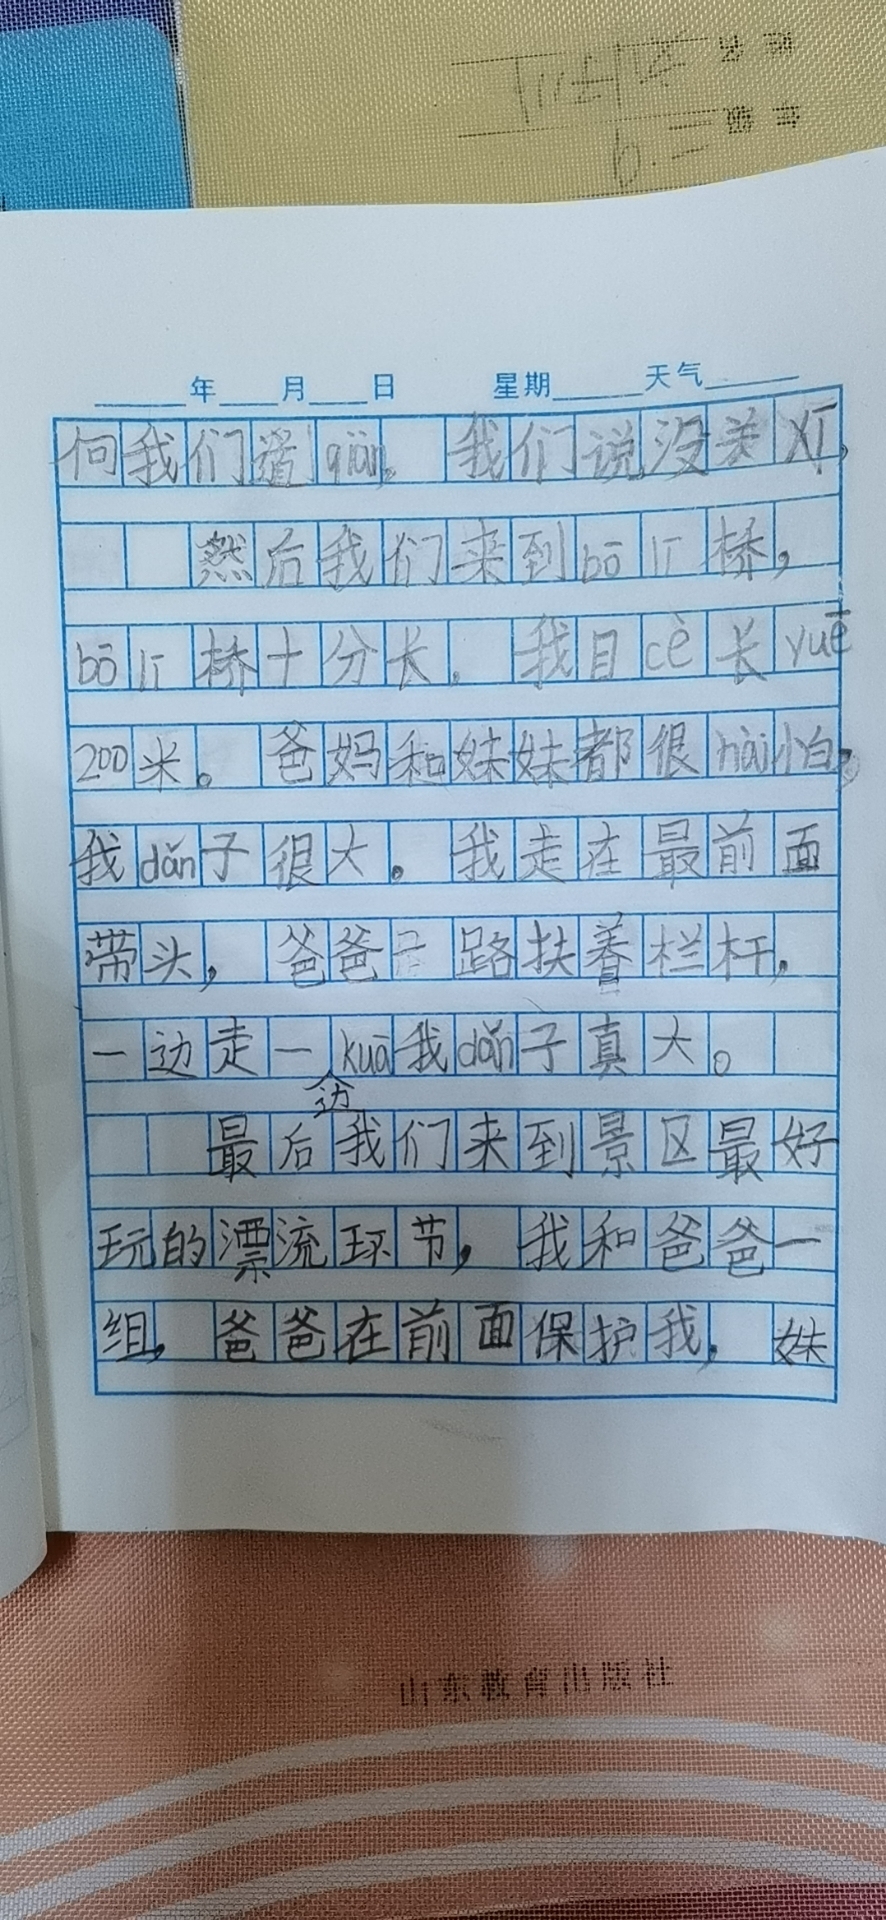 姓名
年级 6.二
年 月 日 星期 天气
向我们道qiàn。我们说没关xī,
然后我们来到bō lī桥,
bō lī桥十分长。我目cè长yuē
200米。爸妈和妹妹都很hài怕,
我dǎn子很大。我走在最前面
带头,爸爸一路扶着栏杆,
一边走一边kuā我dǎn子真大。
最后我们来到景区最好
玩的漂流环节,我和爸爸一
组,爸爸在前面保护我,妹
山东教育出版社